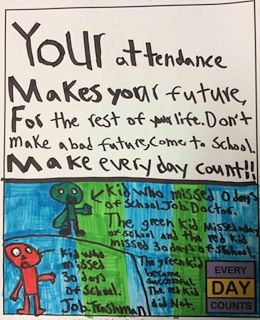 Your attendance
Makes your future,
For the rest of your life. Don't
make a bad future, come to school.
Make every day count!!
Kid who missed 0 days
of school. Job: Doctor.
The green kid Missed 0 day
of school and the red kid
missed 30 days of school.
Kid who
missed
30 days
of school.
Job: Trashman
The green kid
became
successful.
The red kid
did Not.
EVERY
DAY
COUNTS